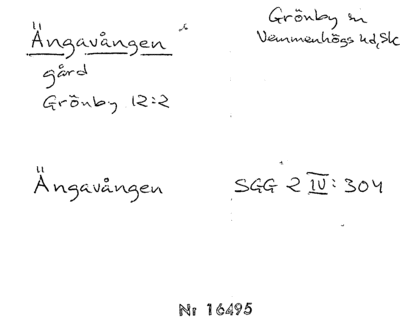 Ängavången
gård
Grönby 12:2
Grönby sn
Vemmenhögs hd, Sk
Ängavången
SGG 2 IV: 304
Nr 16495